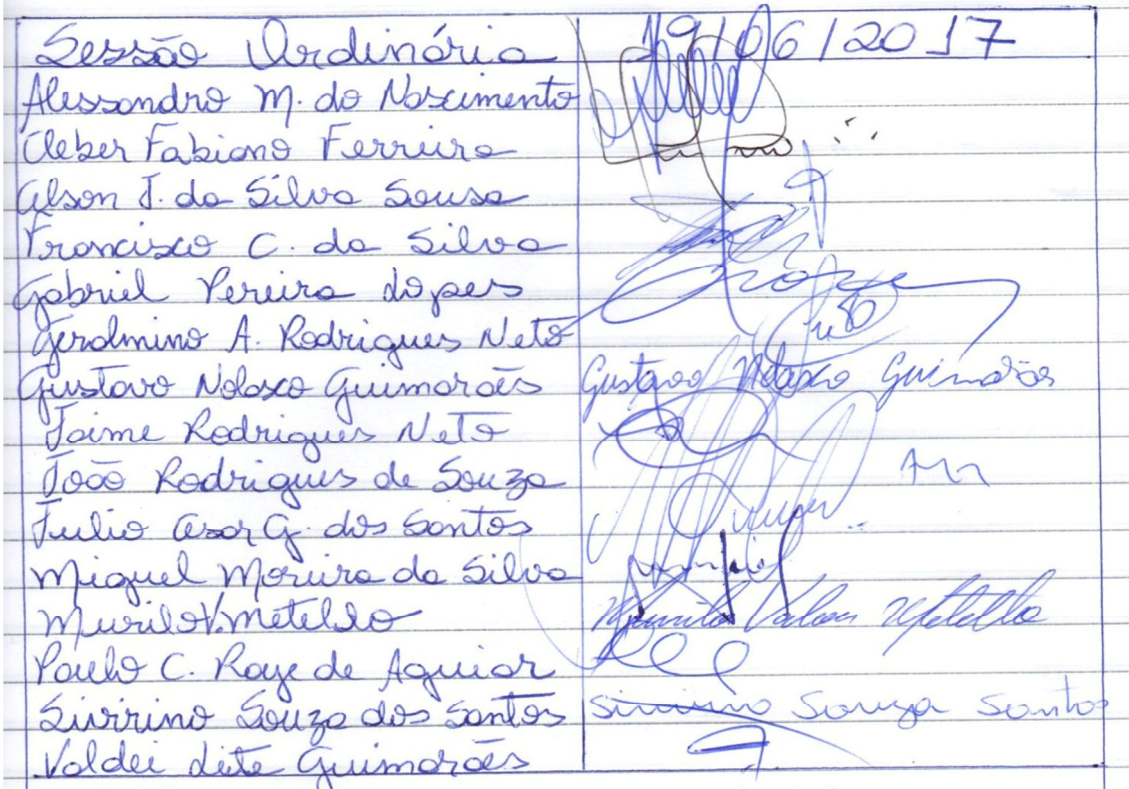 Sessão Ordinária 19/06/2017
Alessandro M. do Nascimento
Cleber Fabiano Ferreira
Alson J. da Silva Sousa
Francisco C. da Silva
Gabriel Pereira Lopes
Gerolmino A. Rodrigues Neto
Gustavo Nolasco Guimarães Gustavo Nolasco Guimarães
Jaime Rodrigues Neto
João Rodrigues de Souza
Julio Cesar G. dos Santos
Miguel Moreira da Silva
Murilo V. Metello Murilo Metello
Paulo C. Raye de Aguiar
Sivirino Souza dos Santos Sivirino Souza Santos
Valdei Leite Guimarães